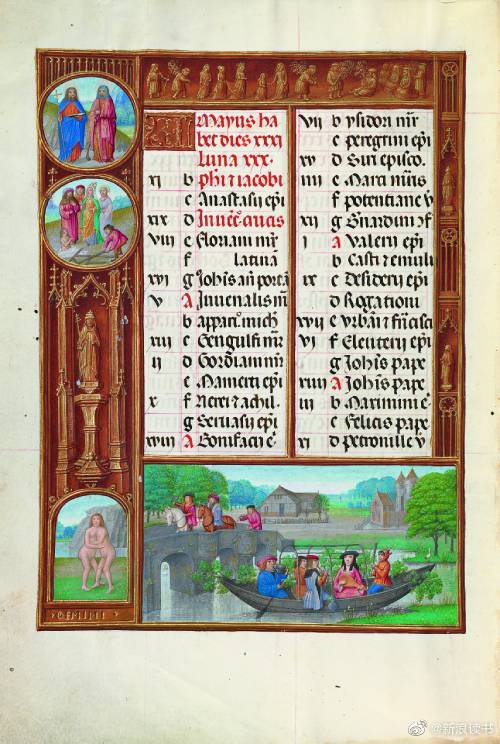 Mayus ha
bet dies xxxi
Luna xxx.
phi & iacobi
xi b Anastasii epi
c
xix d Inuēc. crucis
viii e Floriani mr̄
f latina
xvi g Johis an̄ portā
v A Iuuenalis m̄
b apparc̄. mich
xiii c Gengulfi mr̄
ii d Gordiani mr̄
e Mamerti epi
x f Nerei & achil.
g Seruasij epi
xviii A Bonifacii e
vii b ysidori mr̄
c peregrini epi
xv d Siri episco.
iiii e Marci mr̄is
f potentiane v
xii g Bn̄ardini ↄf
i A Valerij epi
b Casti & emilij
ix c Desiderij epi
d Rogationi
xvii e vrbāi & frācisci
vi f Eleuterij epi
g Johis pape
xiiii A Johis pape
iii b Maximini e
c Felicis pape
xi d petronille v
GEMINI
@新浪读书